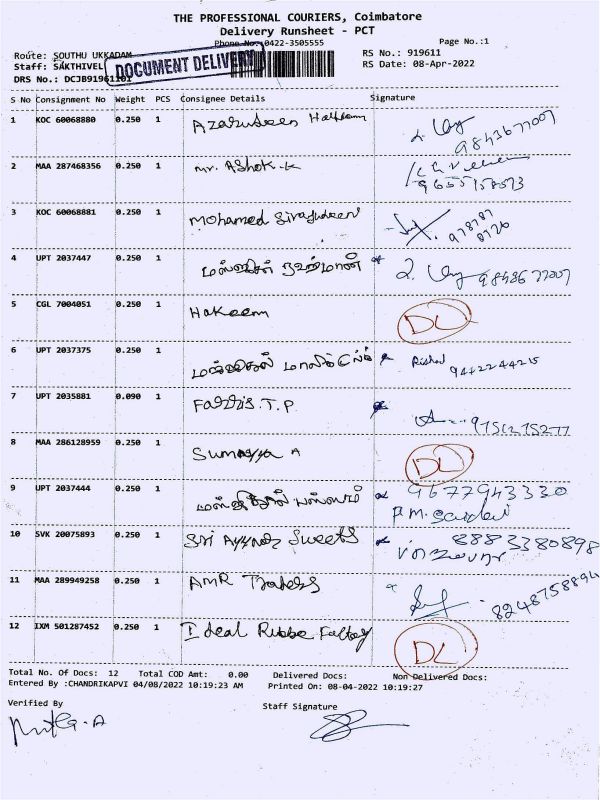 THE PROFESSIONAL COURIERS, Coimbatore
Delivery Runsheet - PCT
Phone No:0422-3505555
Page No.:1
Route: SOUTHU UKKADAM
RS No.: 919611
Staff: SAKTHIVEL
RS Date: 08-Apr-2022
DRS No.: DCJB919611101
DOCUMENT DELIVERY
S No Consignment No Weight PCS Consignee Details Signature
1 KOC 60068880 0.250 1 Azarudeen Hakeem
9843677007
2 MAA 287468356 0.250 1 Mr. Ashok.K
9655758573
3 KOC 60068881 0.250 1 Mohamed Sirajudeen
978787
8726
4 UPT 2037447 0.250 1
9843677007
5 CGL 7004051 0.250 1 Hakeem DL
6 UPT 2037375 0.250 1
9442244215
7 UPT 2035881 0.090 1 Farris.T.P
9751275277
8 MAA 286128959 0.250 1 Sumayya A DL
9 UPT 2037444 0.250 1 9677943330
P.M.
10 SVK 20075893 0.250 1 Sri Sweets 8883380898
11 MAA 289949258 0.250 1 AMR Traders
8248758894
12 IXM 501287452 0.250 1 Ideal Rubbe Faltory DL
Total No. Of Docs: 12 Total COD Amt: 0.00 Delivered Docs: Non Delivered Docs:
Entered By :CHANDRIKAPVI 04/08/2022 10:19:23 AM Printed On: 08-04-2022 10:19:27
Verified By Staff Signature